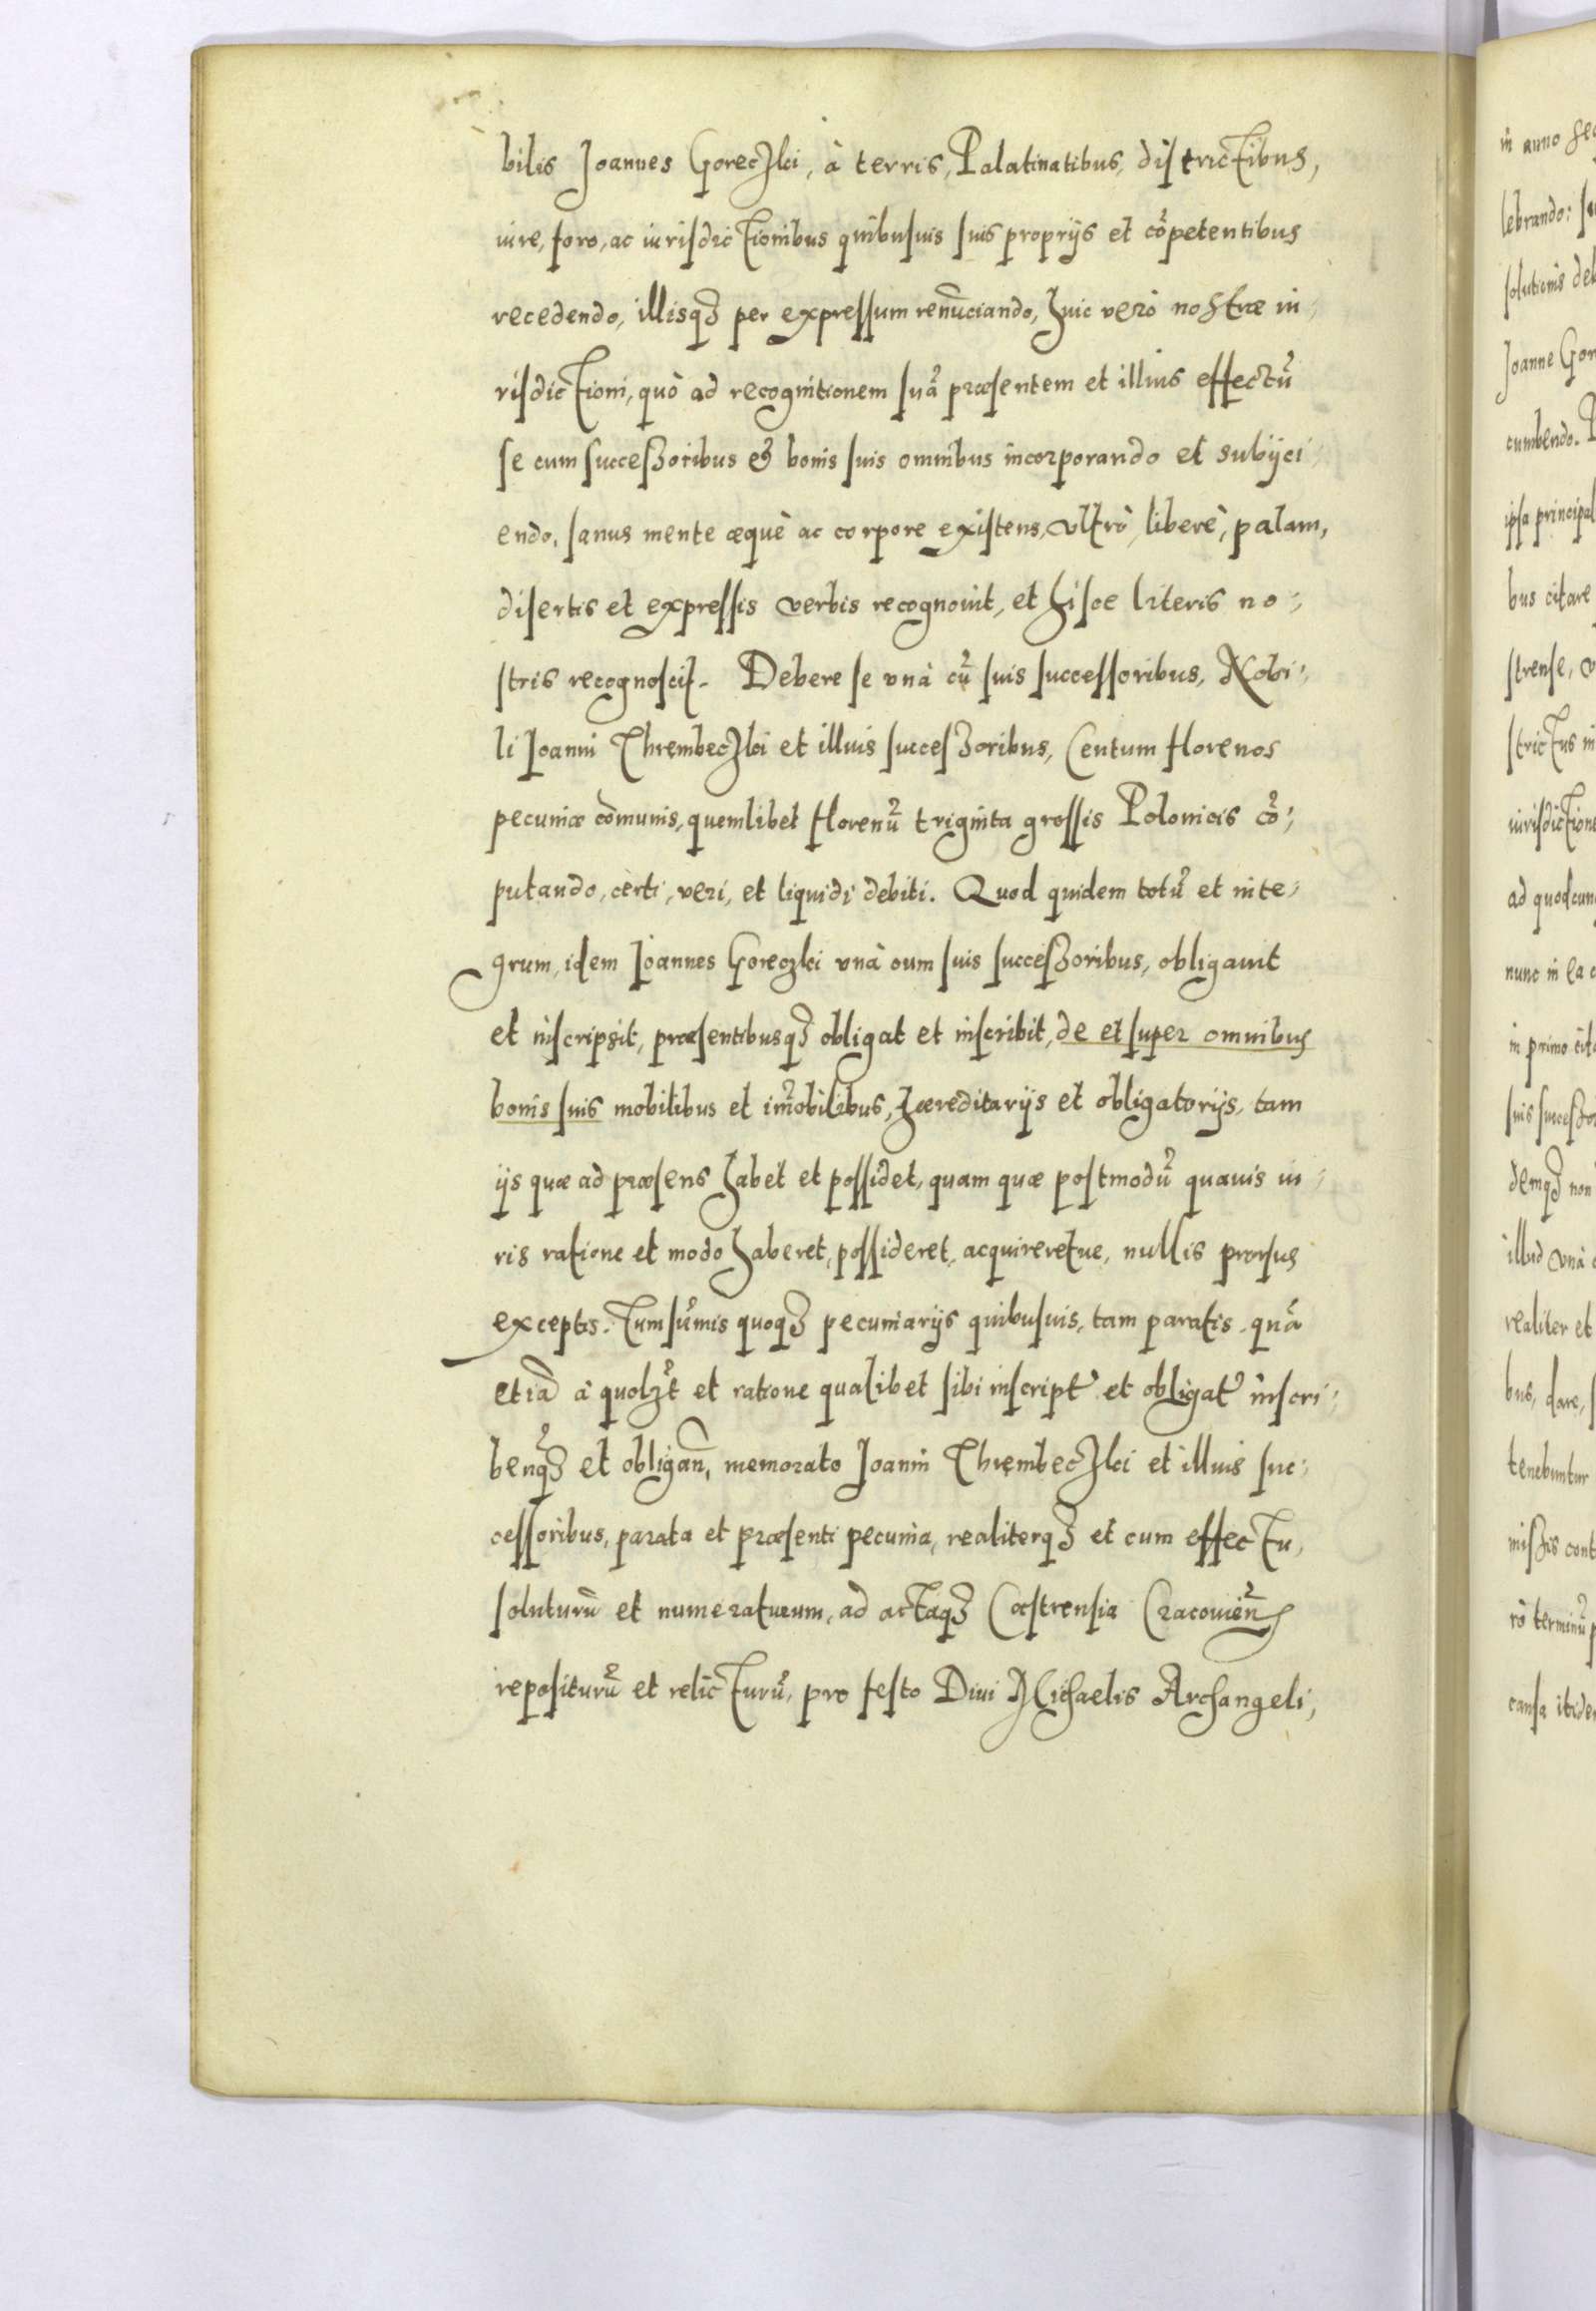 bilis Joannes Goreczki, à terris, Palatinatibus, districtibus,
iure, foro, ac iurisdictionibus quibusuis suis proprijs et cõpetentibus
recedendo, illisq3 per expressum renũciando, huic verò nostræ iu-
risdictioni, quò ad recognitionem suã præsentem et illius effectũ
se cum successoribus et bonis suis omnibus incorporando et subijci-
endo, sanus mente æquè ac corpore existens, vltrò, liberè, palam,
disertis et expressis verbis recognouit, et hisce literis no-
stris recognoscit. Debere se vnà cũ suis successoribus, Nobi-
li Joanni Thrembeczki et illius successoribus, Centum florenos
pecuniæ cõmunis, quemlibet florenũ triginta grossis Polonicis cõ-
putando, certi, veri, et liquidi debiti. Quod quidem totũ et inte-
grum, idem Joannes Goreczki vnà cum suis successoribus, obligauit
et inscripsit, præsentibusq3 obligat et inscribit, de et super omnibus
bonis suis mobilibus et im̃obilibus, hæreditarijs et obligatorijs, tam
ijs quæ ad præsens habet et possidet, quam quæ postmodũ quauis iu-
ris ratione et modo haberet, possideret, acquireretue, nullis prorsus
exceptis. Tum sũmis quoq3 pecuniarijs quibusuis, tam paratis, quã
etiã à quolz̃t et ratione qualibet sibi inscript̃ et obligat̃ inscri-
benq̃3 et obligañ, memorato Joanni Thrembeczki et illius suc-
cessoribus, parata et præsenti pecunia, realiterq3 et cum effectu,
soluturũ et numeraturum, ad actaq3 Castrensia Cracouieñ
repositurũ et relicturũ, pro festo Diui Michaelis Archangeli,
in anno
lebrando:
solutionis
Joanne
cumbendo.
ipsa
bus citare
strense,
strictus
ad
nunc in ea
in primo
suis
demq3 non
illud vnà
realiter et
bus, dare,
tenebuntur
rò terminũ
causa